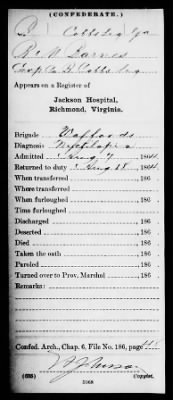 (CONFEDERATE.)
C Cobbs Leg Ga
R M Barnes
Co B Cobbs Leg
Appears on a Register of
Jackson Hospital,
Richmond, Virginia.
Brigade Woffords
Diagnosis
Admitted Aug 9 1864.
Returned to duty Aug 18, 1864.
When transferred , 186 .
Where transferred
When furloughed , 186 .
Time furloughed
Discharged , 186 .
Deserted , 186 .
Died , 186 .
Taken the oath , 186 .
Paroled , 186 .
Turned over to Prov. Marshal , 186 .
Remarks:
Confed. Arch., Chap. 6, File No. 186, page
(635) Copyist.